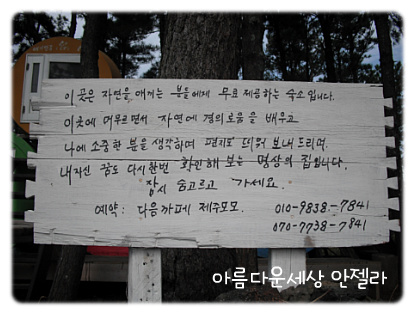 이 곳은 자연을 애끼는 분들에게 무료 제공하는 숙소입니다.
이곳에 머무르면서 자연에 경의로움을 배우고
나에 소중한 분을 생각하며 편지도 띄워 보내드리며.
내 자신 꿈도 다시한번 확인해 보는 명상의 집입니다.
잠시 숨고르고 가세요.
예약: 다음까페 제주모모.
010-9838-7841
070-7738-7841
아름다운세상 안젤라